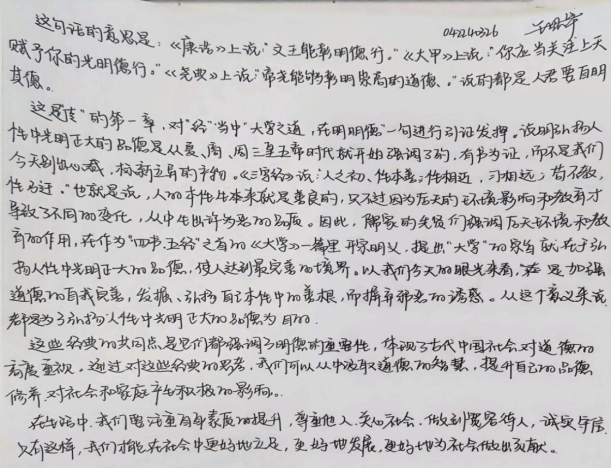 042240326
这句话的意思是:《康诰》上说:“文王能彰明德行。”《大甲》上说:“你应当关注上天
赋予你的光明德行。”《尧典》上说:“帝尧能够彰明崇高的道德。”说的都是人君要自明
其德。
这是“传”的第一章,对“经”当中“大学之道,在明明德”一句进行引证发挥。说明弘扬人
性中光明正大的品德是从夏、商、周三皇五帝时代就开始强调了的,有书为证,而不是我们
今天别出心裁,标新立异的产物。《三字经》说:人之初,性本善;性相近,习相远;苟不教,
性乃迁。”也就是说,人的本性生来就是善良的,只不过因为后天的环境影响和教育才
导致了不同的变化,从中生出许多恶的品质。因此,儒家的先贤们强调后天环境和教
育的作用,在作为“四书五经”之首的《大学》一篇里开宗明义,提出“大学”的宗旨就在于弘
扬人性中光明正大的品德,使人达到最完善的境界。以我们今天的眼光来看,是加强
道德的自我完善,发掘、弘扬自己本性中的善根,而摒弃邪恶的诱惑。从这个意义来说
都是为了弘扬人性中光明正大的品德为目的.
这些经典的共同点是它们都强调了明德的重要性,体现了古代中国社会对道德的
高度重视。通过对这些经典的思考,我们可以从中汲取道德的智慧,提升自己的品德
修养对社会和家庭产生积极的影响.
在生活中,我们要注重自身素质的提升,尊重他人、关心社会、做到宽容待人,诚实守信
只有这样,我们才能在社会中更好地立足,更好地发展,更好地为社会做出贡献。